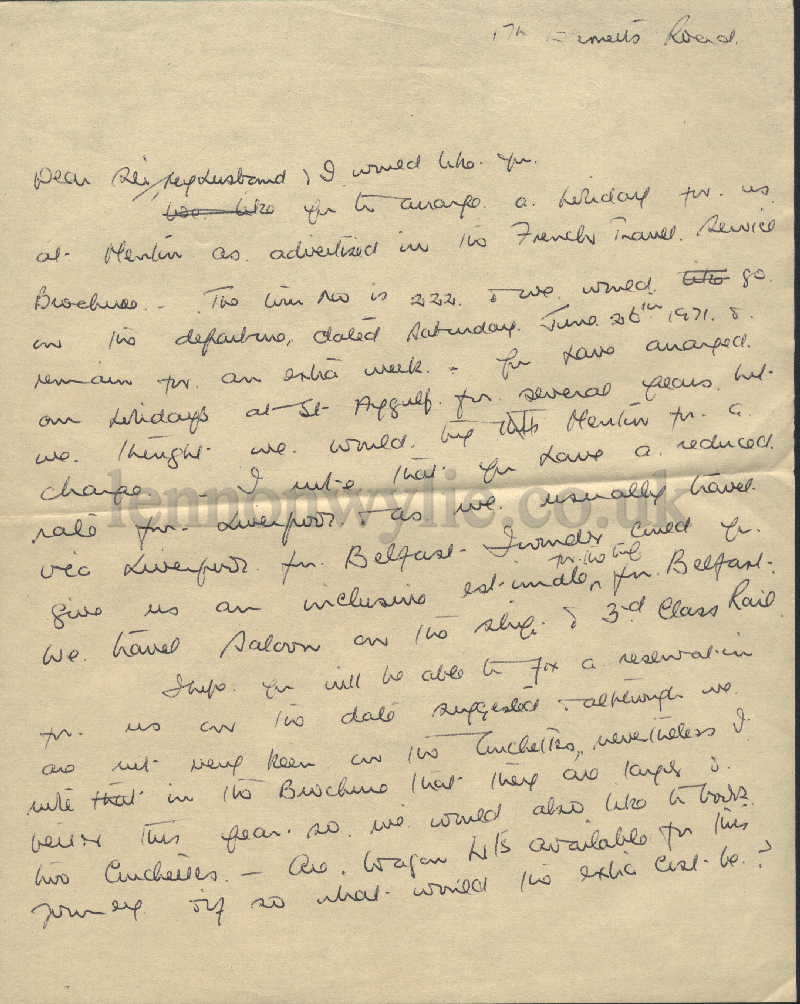 Road.
Dear Sir, my husband & I would like you
would like you to arrange a holiday for us
at Menton as advertised in the French Travel Service
Brochure - The Tour No is 222 & we would like go
on the departure, dated Saturday June 26th 1971 &
remain for an extra week - You have arranged
our holidays at St Aygulf for several years but
we thought we would try this Menton for a
change - I note that you have a reduced
rate for Liverpool & as we usually travel
via Liverpool from Belfast - I wonder could you
give us an inclusive estimate for the trip from Belfast.
We travel Saloon on the ship & 3rd Class Rail
I hope you will be able to fix a reservation
for us on the date suggested - although we
are not very keen on the Couchettes, nevertheless I
note that in the Brochure that they are larger &
better this year so we would also like to book
two Couchettes - Are Wagon Lits available for this
journey & if so what would the extra cost be?
lennonwylie.co.uk